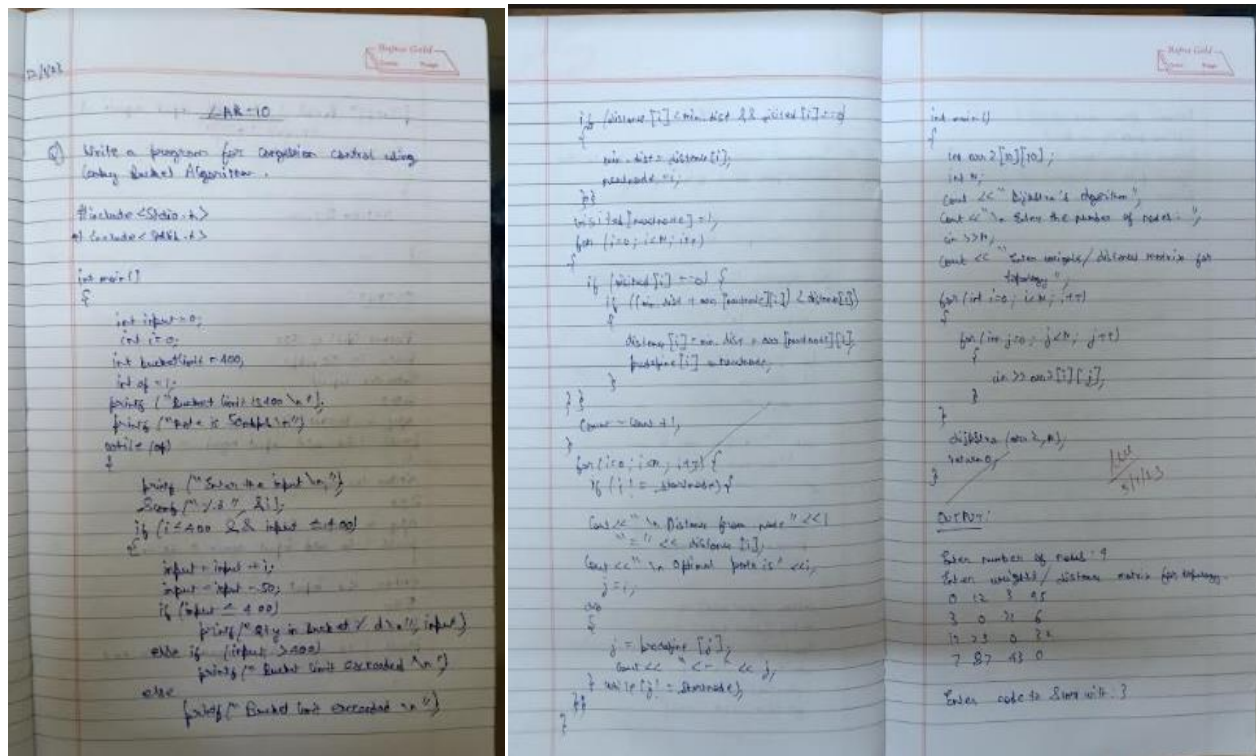 Rajhas Gold
Date Page
LAB-10
Q) Write a program for congestion control using
Leaky Bucket Algorithm.
#include <stdio.h>
#include <stdlib.h>
int main()
{
int input = 0;
int i = 0;
int bucketlimit = 400;
int op = 1;
printf ("Bucket limit is 400 \n");
printf ("Rate is 50mbps \n")
while (op)
{
printf ("Enter the input \n");
Scanf ("%d", &i);
if (i ≤ 400 && input ≤ 400)
{
input = input + i;
input = input - 50;
if (input ≤ 400)
printf ("Qty in bucket % d \n", input)
else if (input > 400)
printf (" Bucket limit exceeded \n")
else
printf (" Bucket limit exceeded \n")
if (distance [i] < min_dist && visited [i] == 0)
{
min_dist = distance [i];
newnode = i;
}}
visited [newnode] = 1;
for (i=0; i<n; i++)
{
if (visited [i] == 0) {
if ((min_dist + arr [newnode][i]) < distance [i])
{
distance [i] = min_dist + arr [newnode] [i];
[i] = newnode;
}
} }
Count = Count + 1;
}
for (i=0; i<n; i++) {
if (i != startnode) {
Cout << "\n Distance from node" << i
"=" << distance [i];
Cout << "\n Optimal path is" << i;
j = i;
do
{
j = [j];
Cout << "<-" << j;
} while (j != startnode);
}}
}
Date Page
int main ()
{
int arr2 [10][10];
int n;
Cout << "Dijkstra's algorithm";
Cout << "\n Enter the number of nodes: ";
cin >> n;
Cout << "Enter weights/ distance matrix for
topology";
for (int i=0; i<n; i++)
{
for (int j=0; j<n; j++)
{
cin >> arr2 [i] [j];
}
}
dijkstra (arr2, n);
return 0;
}
OUTPUT:
Enter number of nodes: 4
Enter weights/ distance matrix for topology.
0 12 3 95
3 0 21 6
12 23 0 32
7 87 43 0
Enter node to Start with: 3